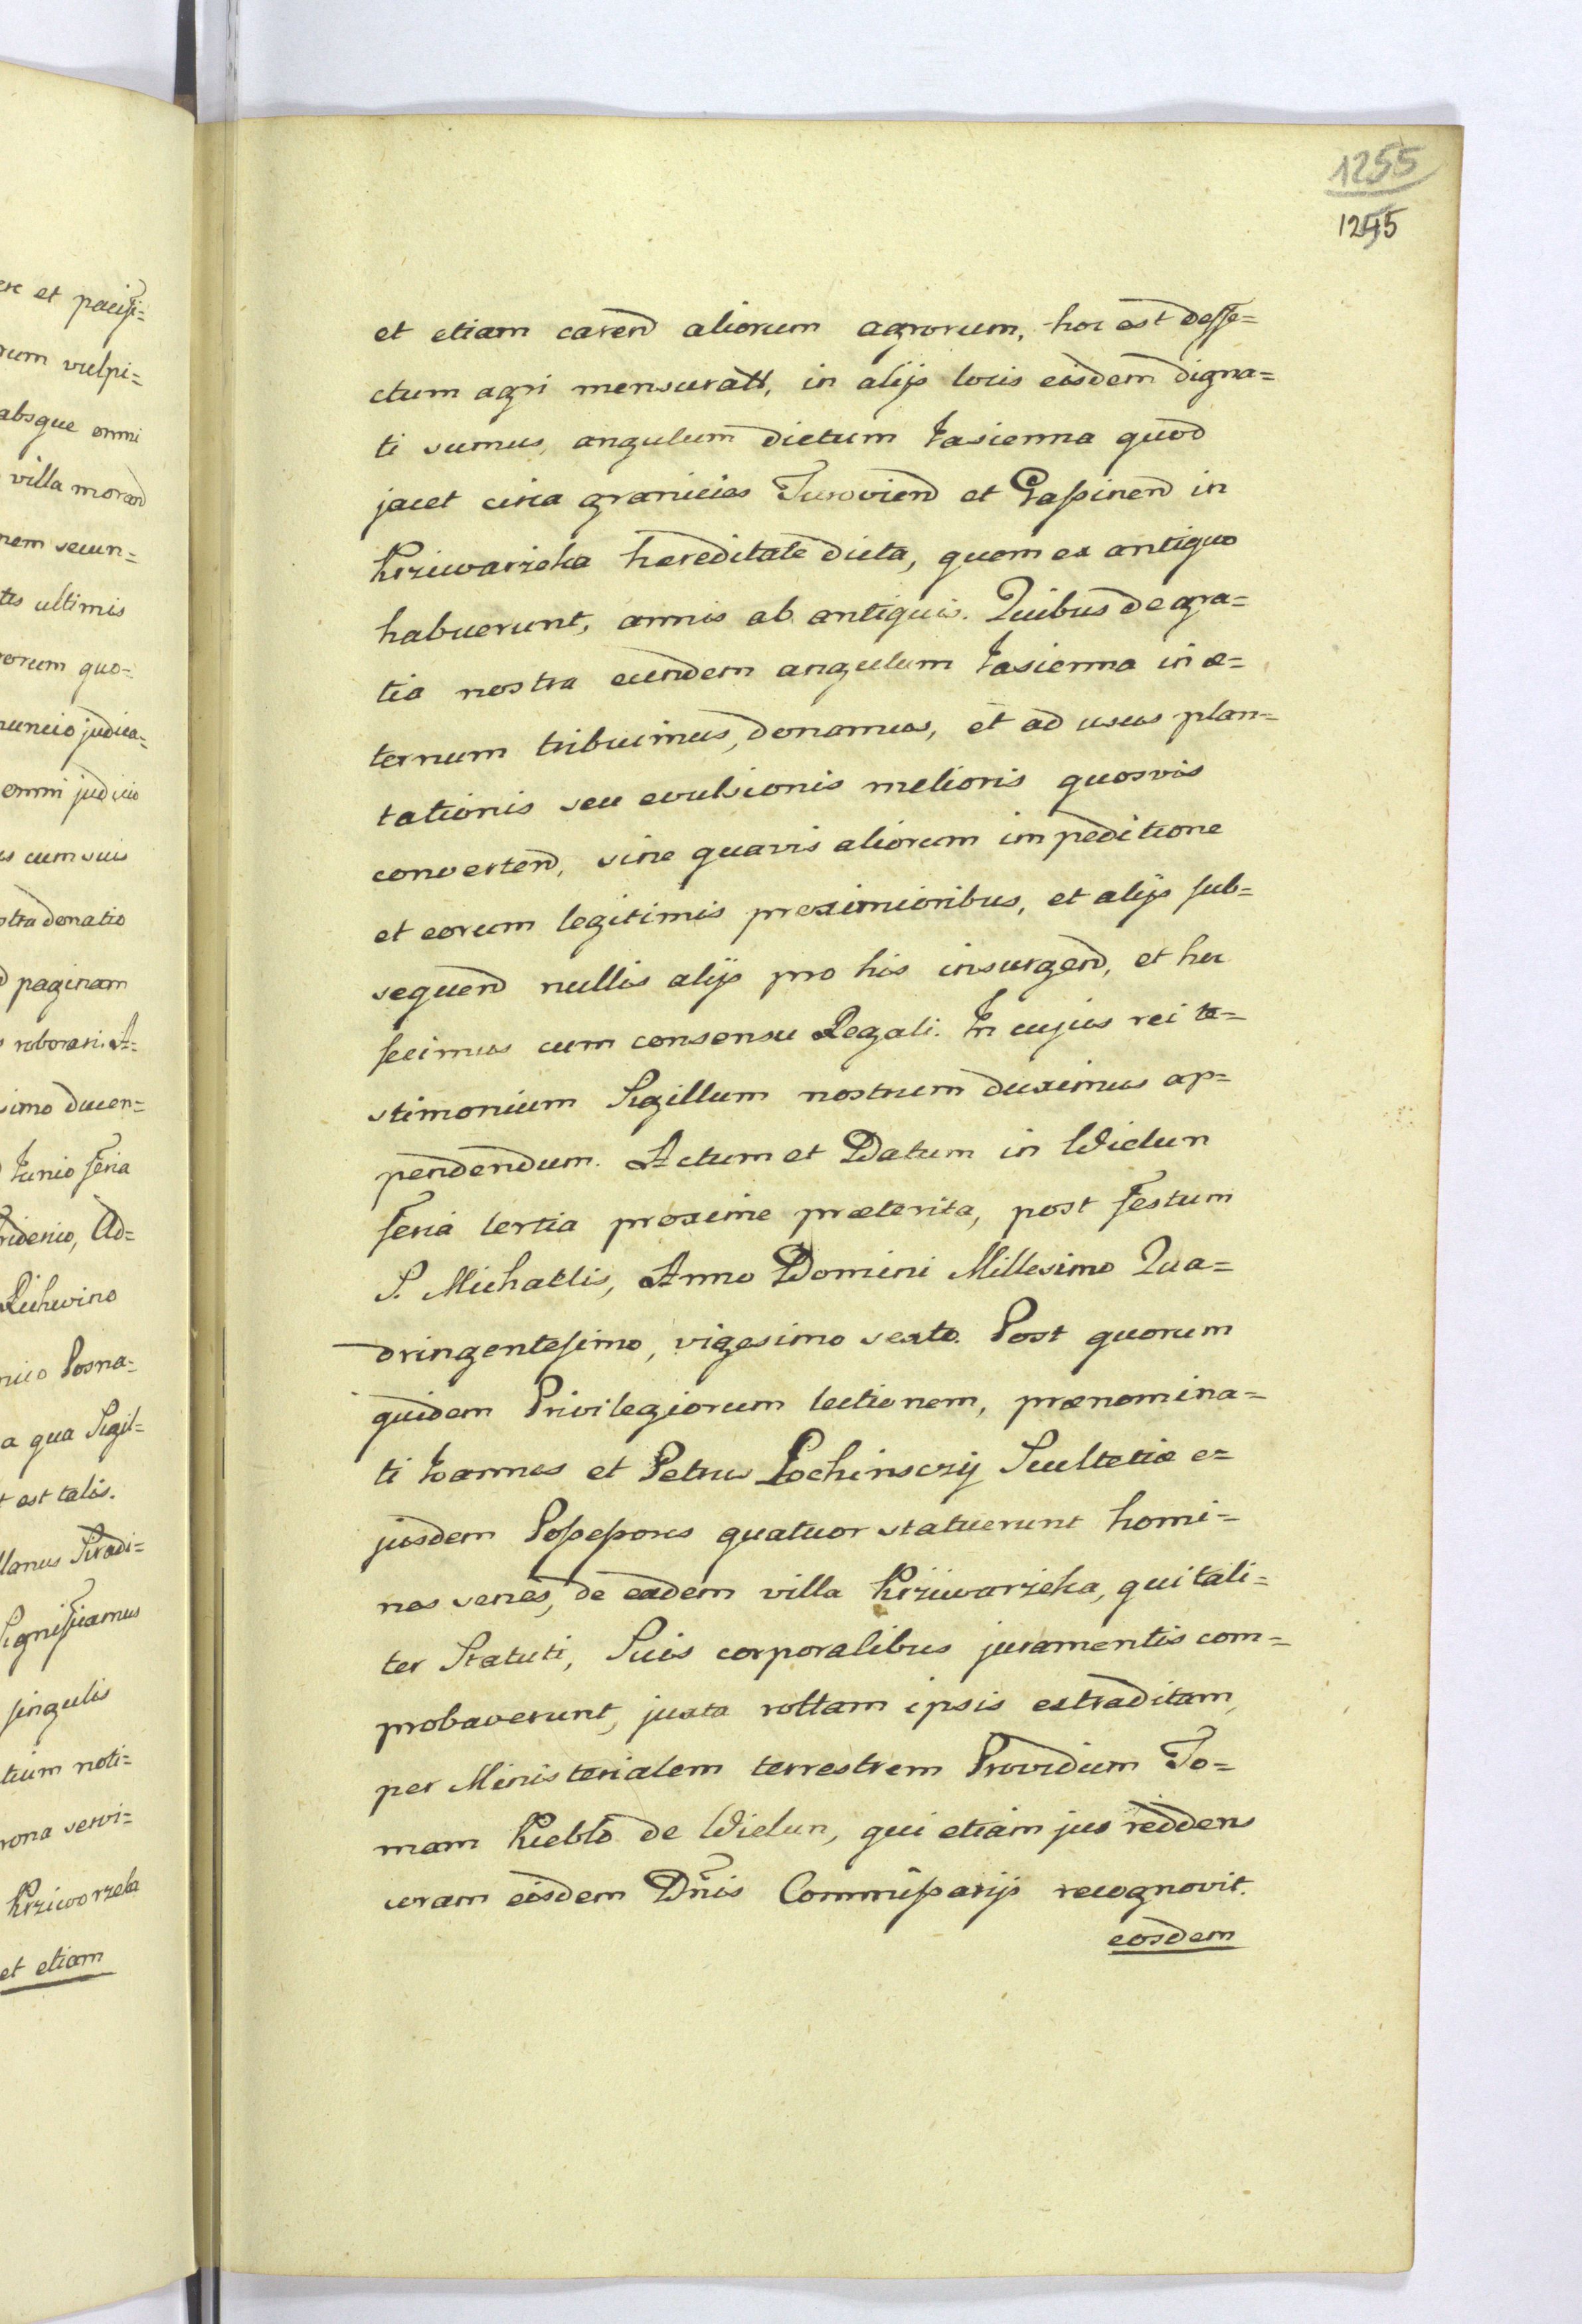 1255
1245
et etiam carend aliorum agrorum, hoc est deffe=
ctum agri mensuratt, in alijs locis eisdem digna=
ti sumus, angulum dictum Jasienna quod
jacet circa granicies Turoviend et Gaßinend in
Krziwarzeka hæreditate dicta, quem ex antiquo
habuerunt, annis ab antiquis. Quibus de gra=
tia nostra eundem angulum Jasienna in æ=
ternum tribuimus, donamus, et ad usus plan=
tationis seu evulsionis melioris quosvis
convertend, sine quavis aliorum impeditione
et eorum legitimis proximioribus, et alijs sub=
sequend nullis alijs pro his insurgend, et hoc
fecimus cum consensu Regali. In cujus rei te=
stimonium Sigillum nostrum duximus ap=
pendendum. Actum et Datum in Wielun
feria tertia proxime præterita, post festum
S. Michaelis, Anno Domini Millesimo Qua=
dringentesimo, vigesimo sexto. Post quorum
quidem Privilegiorum lectionem, prænomina=
ti Joannes et Petrus Łochinsczÿ Scultetiæ e=
jusdem Poßeßores quatuor statuerunt homi=
nes senes, de eadem villa Krziwarzeka, qui tali=
ter Statuti, Suis corporalibus juramentis com=
probaverunt, juxta rottam ipsis extraditam,
per Ministerialem terrestrem Providum To=
mam Kiebło de Wielun, qui etiam jus reddens
coram eisdem Dnis Commißarijs recognovit.
eosdem
et pacifi=
rum vulpi=
absque omni
villa morand
nem secun=
tes ultimis
rorum quo=
nuncio judica=
omni judicio
us cum suis
stra donatio
paginam
roborari. A=
simo ducen=
Junio feria
ridenio, Ad=
Lichwino
nico Posna=
a qua Sigil=
t est talis.
llanus Siradi=
Significamus
singulis
tium noti=
rona servi=
Krziworzeka
et etiam